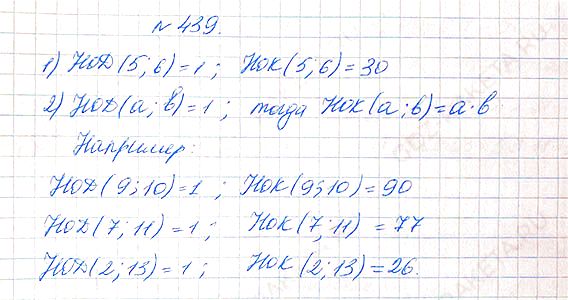 № 439.
1) НОД(5; 6) = 1; НОК(5; 6) = 30
2) НОД(a; b) = 1; тогда НОК(a; b) = a·b
Например:
НОД(9; 10) = 1; НОК(9; 10) = 90
НОД(7; 11) = 1; НОК(7; 11) = 77
НОД(2; 13) = 1; НОК(2; 13) = 26.